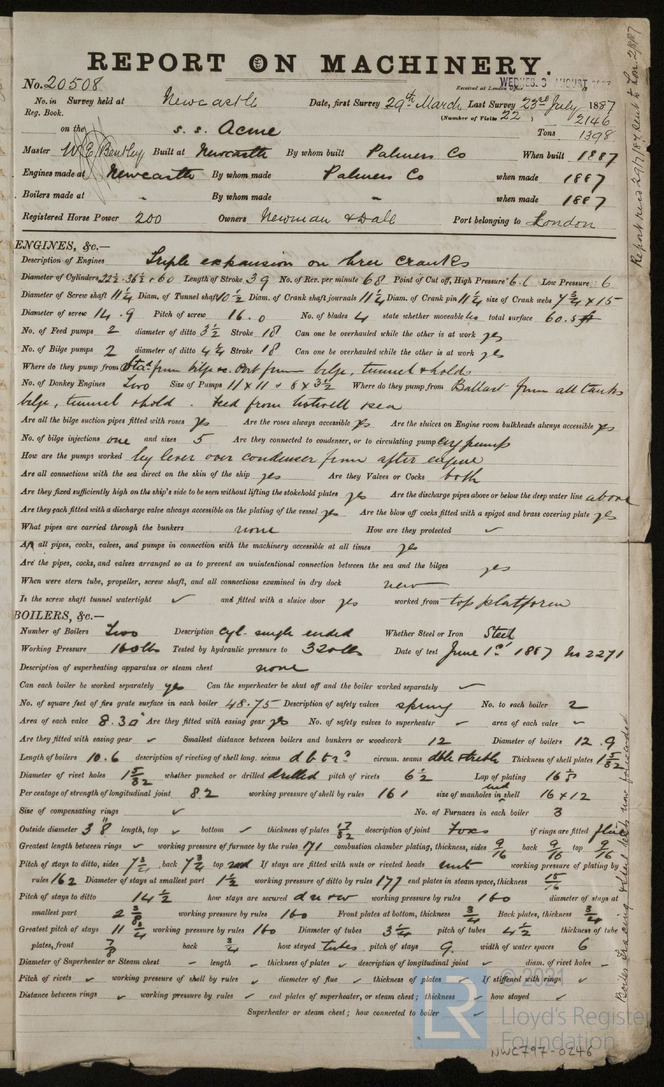 REPORT ON MACHINERY.
No. 20508 Received at London Office WEDNES. 3 AUGUST 1887
No. in Survey held at Newcastle Date, first Survey 29th March Last Survey 23rd July 1887
Reg. Book. (Number of Visits 22) 2146
on the s.s. Acme Tons 1398
Master W. G. Bentley Built at Newcastle By whom built Palmers Co When built 1887
Engines made at Newcastle By whom made Palmers Co when made 1887
Boilers made at " By whom made " when made 1887
Registered Horse Power 200 Owners Newman & Dale Port belonging to London
ENGINES, &c.—
Description of Engines Triple expansion on three cranks
Diameter of Cylinders 22½ . 36½ + 60 Length of Stroke 39 No. of Rev. per minute 68 Point of Cut off, High Pressure Low Pressure
Diameter of Screw shaft 11¼ Diam. of Tunnel shaft 10½ Diam. of Crank shaft journals 11¼ Diam. of Crank pin 11¼ size of Crank webs 7¾ x 15
Diameter of screw 14.9 Pitch of screw 16.0 No. of blades 4 state whether moveable no total surface 60.5 ft
No. of Feed pumps 2 diameter of ditto 3½ Stroke 18 Can one be overhauled while the other is at work yes
No. of Bilge pumps 2 diameter of ditto 4¼ Stroke 18 Can one be overhauled while the other is at work yes
Where do they pump from Star from bilge &c. Port from bilge, tunnel & holds
No. of Donkey Engines Two Size of Pumps 11 x 11 + 8 x 3½ Where do they pump from Ballast from all tanks
bilge, tunnel & hold . Feed from hotwell & sea
Are all the bilge suction pipes fitted with roses yes Are the roses always accessible yes Are the sluices on Engine room bulkheads always accessible yes
No. of bilge injections one and sizes 5 Are they connected to condenser, or to circulating pump circ pump
How are the pumps worked by lever over condenser from after engine
Are all connections with the sea direct on the skin of the ship yes Are they Valves or Cocks both
Are they fixed sufficiently high on the ship's side to be seen without lifting the stokehold plates yes Are the discharge pipes above or below the deep water line above
Are they each fitted with a discharge valve always accessible on the plating of the vessel yes Are the blow off cocks fitted with a spigot and brass covering plate yes
What pipes are carried through the bunkers none How are they protected ✓
Are all pipes, cocks, valves, and pumps in connection with the machinery accessible at all times yes
Are the pipes, cocks, and valves arranged so as to prevent an unintentional connection between the sea and the bilges yes
When were stern tube, propeller, screw shaft, and all connections examined in dry dock new
Is the screw shaft tunnel watertight ✓ and fitted with a sluice door yes worked from top platform
BOILERS, &c.—
Number of Boilers Two Description Cyl. single ended Whether Steel or Iron Steel
Working Pressure 160 lbs Tested by hydraulic pressure to 320 lbs Date of test June 1st 1887 No 2271
Description of superheating apparatus or steam chest none
Can each boiler be worked separately yes Can the superheater be shut off and the boiler worked separately ✓
No. of square feet of fire grate surface in each boiler 48.75 Description of safety valves spring No. to each boiler 2
Area of each valve 8.30 Are they fitted with easing gear yes No. of safety valves to superheater ✓ area of each valve ✓
Are they fitted with easing gear ✓ Smallest distance between boilers and bunkers or woodwork 12 Diameter of boilers 12.9
Length of boilers 10.6 description of riveting of shell long. seams circum. seams dble treble Thickness of shell plates
Diameter of rivet holes whether punched or drilled drilled pitch of rivets 6½ Lap of plating
Per centage of strength of longitudinal joint 82 working pressure of shell by rules 161 size of manholes in shell end 16 x 12
Size of compensating rings ✓ No. of Furnaces in each boiler 3
Outside diameter 3' 8" length, top ✓ bottom ✓ thickness of plates 17/32 description of joint if rings are fitted
Greatest length between rings ✓ working pressure of furnace by the rules 171 combustion chamber plating, thickness, sides 9/16 back 9/16 top 9/16
Pitch of stays to ditto, sides 7¾ back 7¾ top If stays are fitted with nuts or riveted heads nuts working pressure of plating by
rules 162 Diameter of stays at smallest part 1½ working pressure of ditto by rules 177 end plates in steam space, thickness 15/16
Pitch of stays to ditto 14½ how stays are secured working pressure by rules 160 diameter of stays at
smallest part working pressure by rules 160 Front plates at bottom, thickness ¾ Back plates, thickness ¾
Greatest pitch of stays 11¾ working pressure by rules 160 Diameter of tubes 3¼ pitch of tubes 4½ thickness of tube
plates, front 7/8 back ¾ how stayed tubes pitch of stays 9 width of water spaces 6
Diameter of Superheater or Steam chest ✓ length ✓ thickness of plates ✓ description of longitudinal joint ✓ diam. of rivet holes ✓
Pitch of rivets ✓ working pressure of shell by rules ✓ diameter of flue ✓ thickness of plates ✓ If stiffened with rings ✓
Distance between rings ✓ working pressure by rules ✓ end plates of superheater, or steam chest; thickness ✓ how stayed ✓
Superheater or steam chest; how connected to boiler ✓
Report recd 29/7/87 & sent to Lon 2/8/87
Boiler tracing & steel tests now forwarded
© 2021
LR
Lloyd's Register
Foundation
NWC797-0246